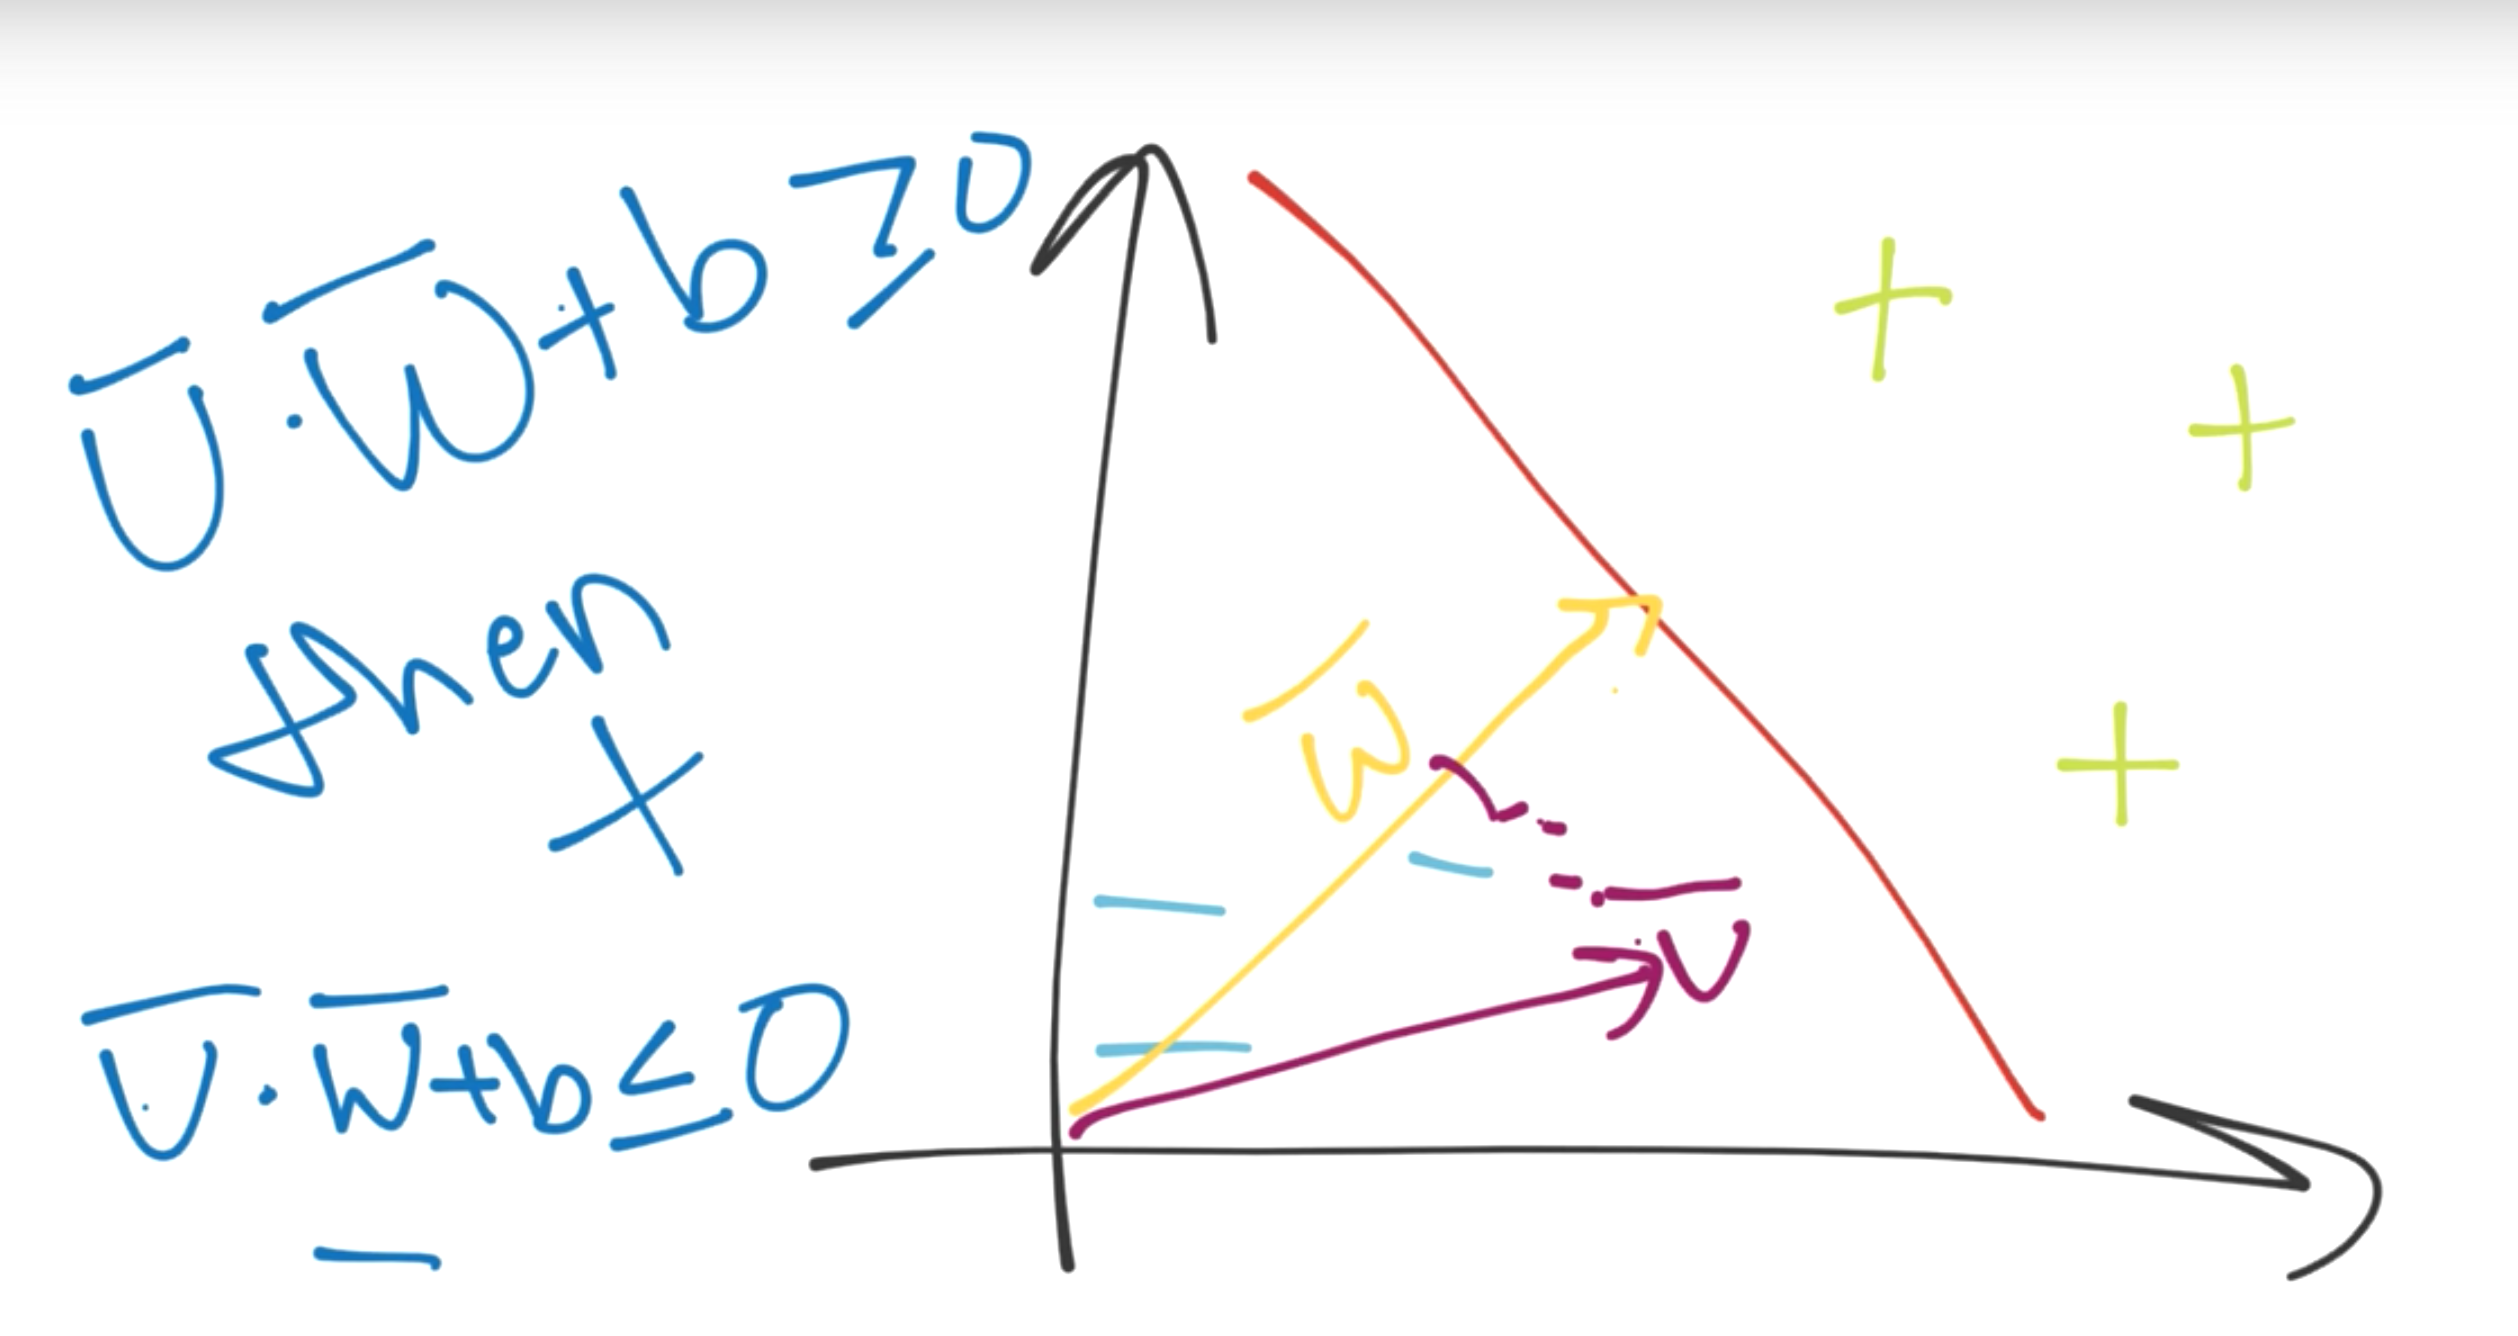 U̅ · W̅ + b ≥ 0
then
+
U̅ · W̅ + b ≤ 0
−
w̅
U̅
+
+
+
−
−
−